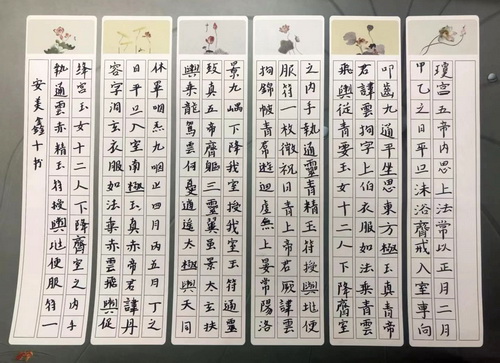 瓊宮五帝内思上法常以正月二月
甲乙之日平旦沐浴齋戒入室東向
叩齒九通平坐思東方極玉真青帝
君諱雲拘字上伯衣服如法乘青雲
飛輿從青要玉女十二人下降齋室
之内手執通靈青精玉符授與兆便
服符一枚微祝曰青上帝君厥諱雲
拘錦帔青帬遊迴虛無上晏常陽洛
景九嵎下降我室授我玉符通靈
致真五帝齊軀三靈翼景太玄扶
輿乘龍駕雲何曼遁遙太極與天同
休畢咽炁九咽止四月丙五月丁之
日平旦入室南極玉真赤帝君諱丹
容字洞玄衣服如法乘赤雲飛輿從
絳宮玉女十二人下降齋室之内手
執通雲赤精玉符授與兆便服符一
安美鑫十书